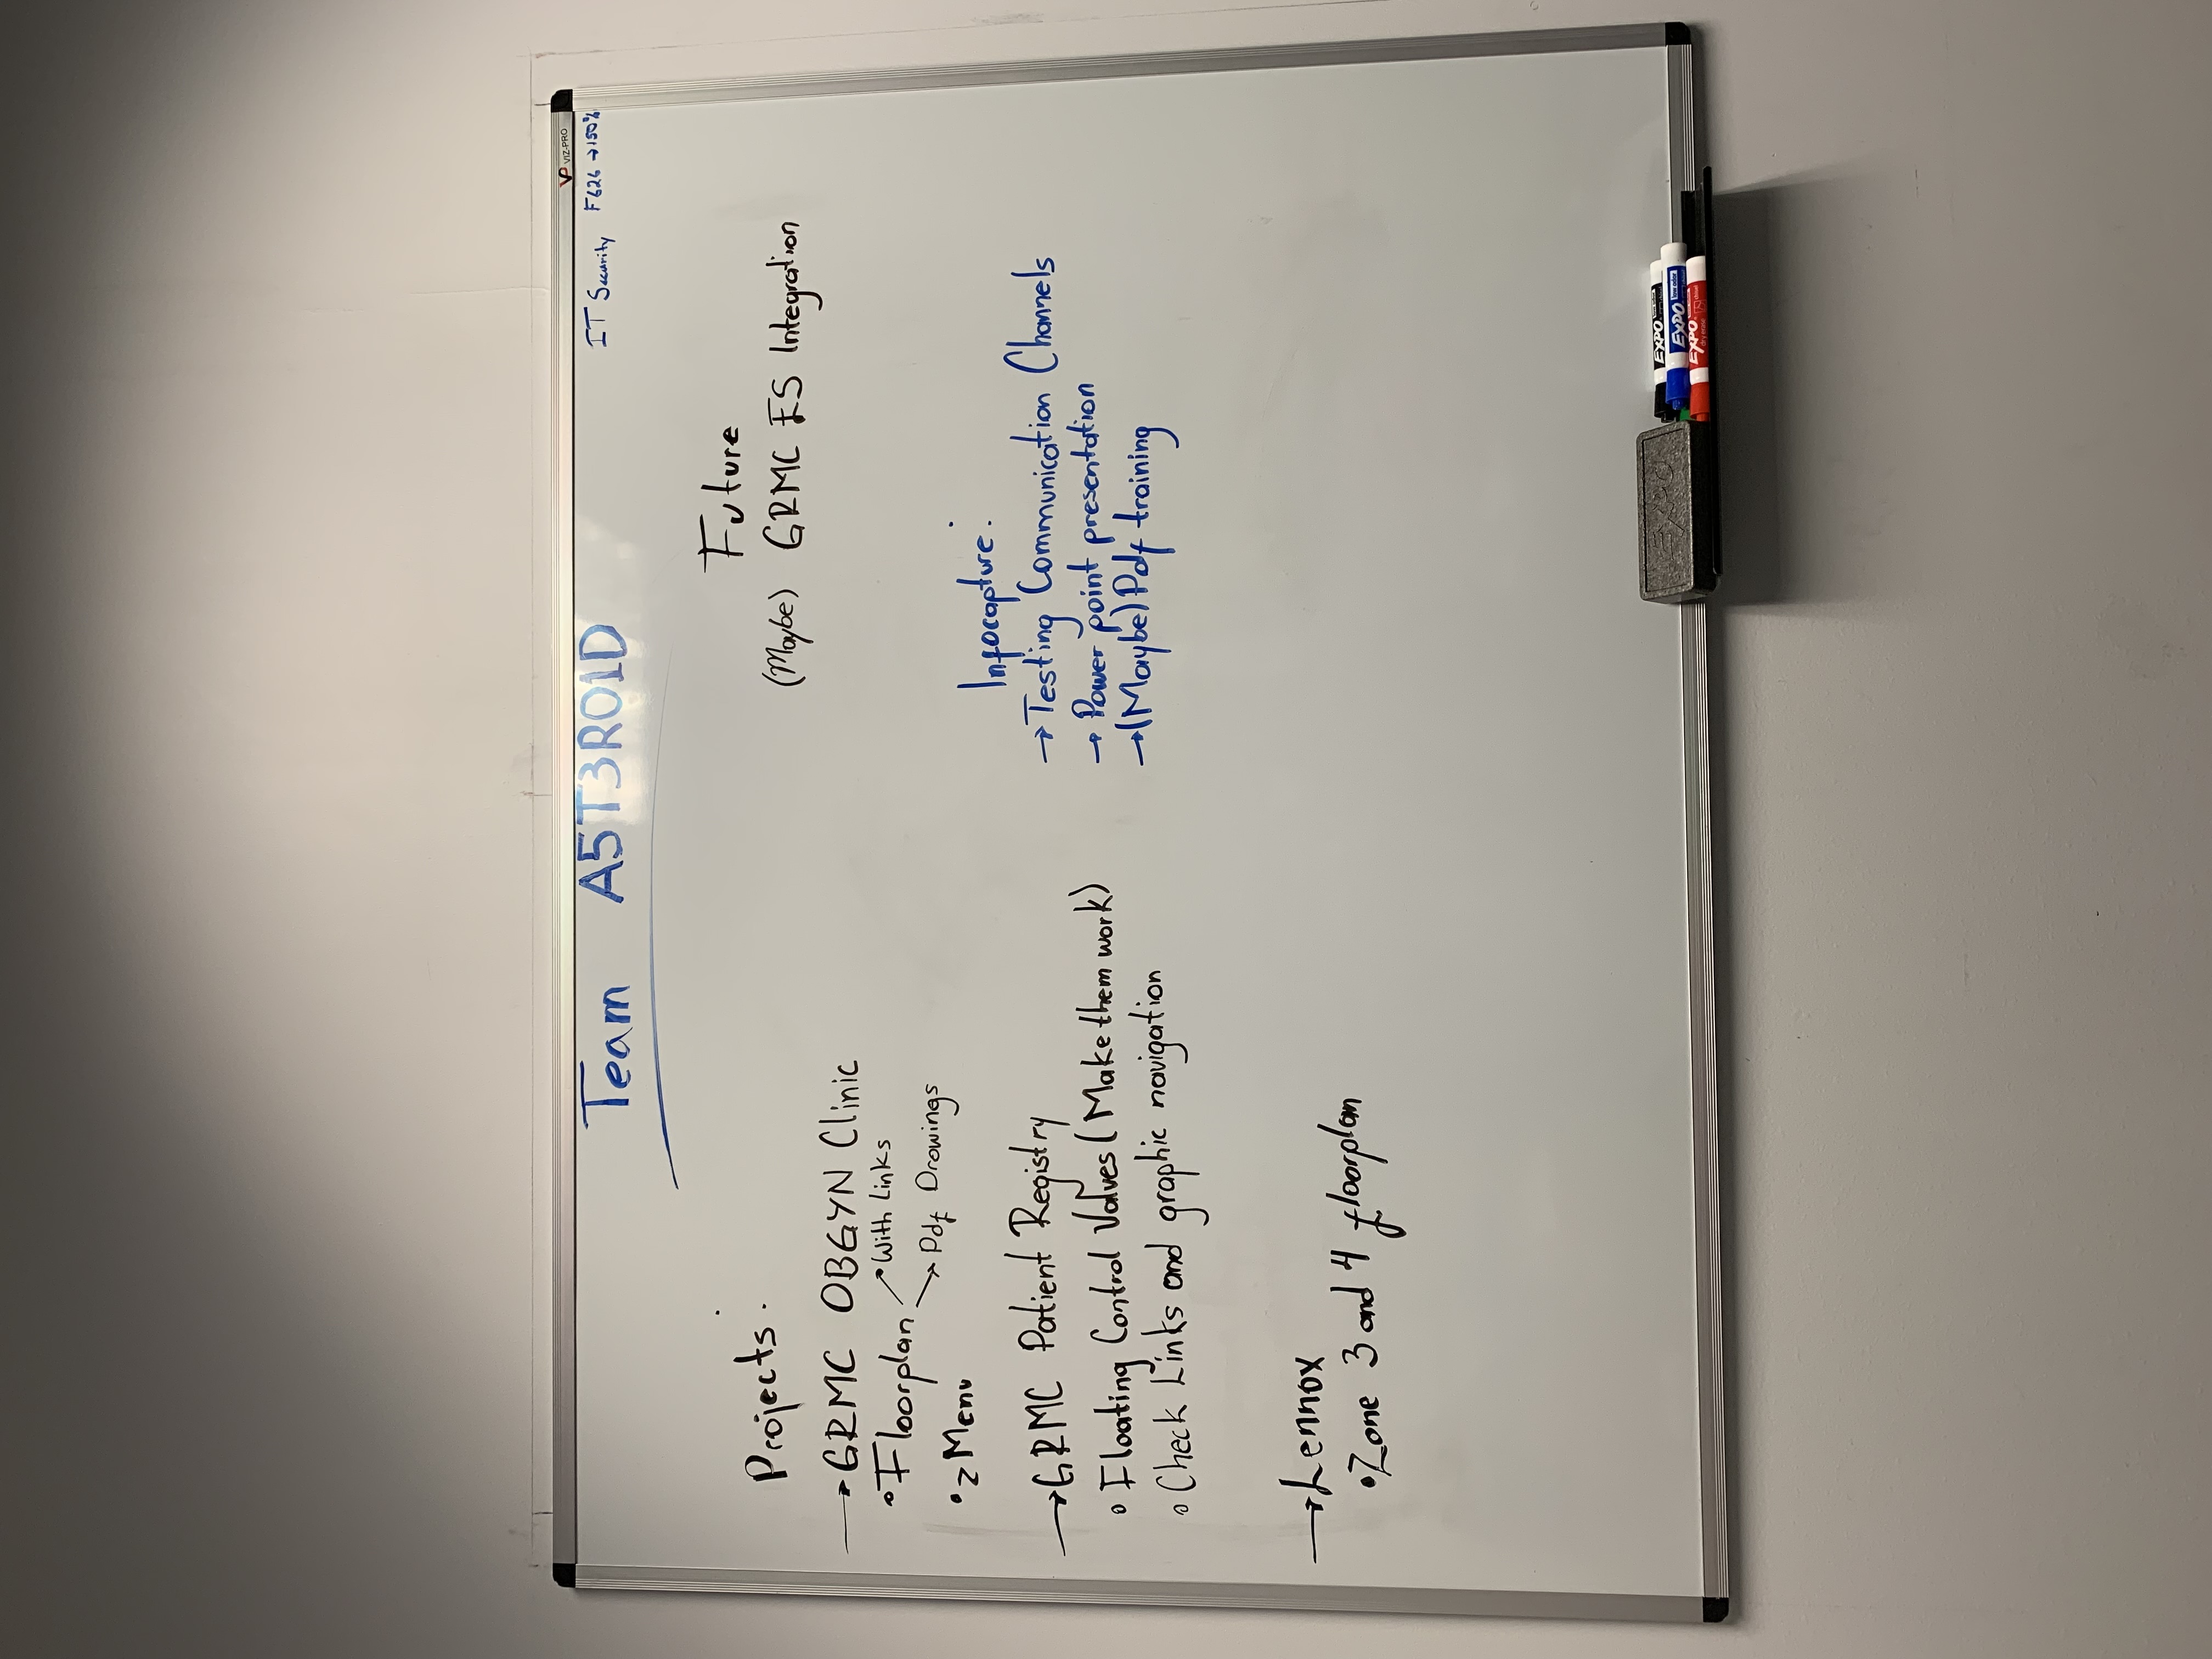 VP VIZ-PRO
Team A5T3R01D
IT Security F626 →150%
Projects:
→ GRMC OBGYN Clinic
• Floorplan
With Links
Pdf Drawings
• zMenu
→ GRMC Patient Registry
◦ Floating Control Valves (Make them work)
◦ Check Links and graphic navigation
→ Lennox
• Zone 3 and 4 floorplan
Future
(Maybe) GRMC ES Integration
Infocapture:
→ Testing Communication Channels
→ Power point presentation
→ (Maybe) Pdf training
EXPO
EXPO
EXPO low odor
EXPO dry erase